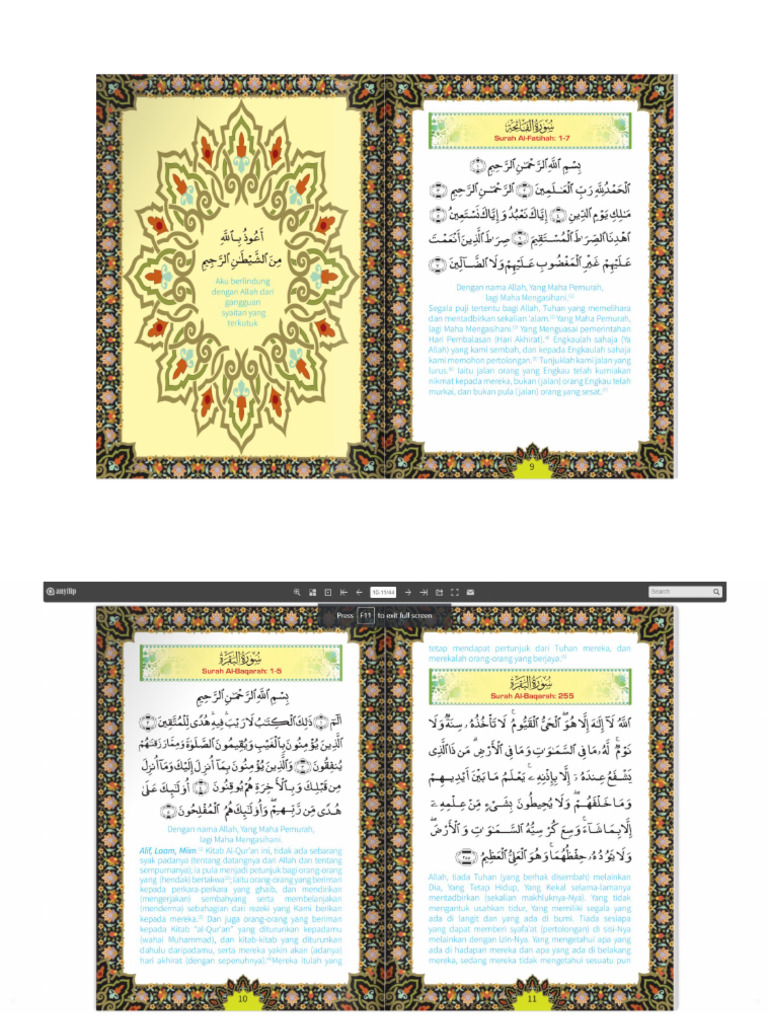 أَعُوذُ بِاللَّهِ
مِنَ الشَّيْطَٰنِ الرَّجِيمِ
Aku berlindung
dengan Allah dari
gangguan
syaitan yang
terkutuk
سُورَةُ الفَاتِحَة
Surah Al-Fatihah: 1-7
بِسْمِ ٱللَّهِ ٱلرَّحْمَٰنِ ٱلرَّحِيمِ ١
ٱلْحَمْدُ لِلَّهِ رَبِّ ٱلْعَٰلَمِينَ ٢ ٱلرَّحْمَٰنِ ٱلرَّحِيمِ ٣
مَٰلِكِ يَوْمِ ٱلدِّينِ ٤ إِيَّاكَ نَعْبُدُ وَإِيَّاكَ نَسْتَعِينُ ٥
ٱهْدِنَا ٱلصِّرَٰطَ ٱلْمُسْتَقِيمَ ٦ صِرَٰطَ ٱلَّذِينَ أَنْعَمْتَ
عَلَيْهِمْ غَيْرِ ٱلْمَغْضُوبِ عَلَيْهِمْ وَلَا ٱلضَّآلِّينَ ٧
Dengan nama Allah, Yang Maha Pemurah,
lagi Maha Mengasihani.(1)
Segala puji tertentu bagi Allah, Tuhan yang memelihara
dan mentadbirkan sekalian 'alam.(2) Yang Maha Pemurah,
lagi Maha Mengasihani.(3) Yang Menguasai pemerintahan
Hari Pembalasan (Hari Akhirat).(4) Engkaulah sahaja (Ya
Allah) yang kami sembah, dan kepada Engkaulah sahaja
kami memohon pertolongan.(5) Tunjuklah kami jalan yang
lurus.(6) Iaitu jalan orang yang Engkau telah kurniakan
nikmat kepada mereka, bukan (jalan) orang Engkau telah
murkai, dan bukan pula (jalan) orang yang sesat.(7)
9
anyflip
10-11/44
Search
Press F11 to exit full screen
سُورَةُ البَقَرَة
Surah Al-Baqarah: 1-5
بِسْمِ ٱللَّهِ ٱلرَّحْمَٰنِ ٱلرَّحِيمِ
الٓمٓ ١ ذَٰلِكَ ٱلْكِتَٰبُ لَا رَيْبَ ۛ فِيهِ ۛ هُدًى لِّلْمُتَّقِينَ ٢
ٱلَّذِينَ يُؤْمِنُونَ بِٱلْغَيْبِ وَيُقِيمُونَ ٱلصَّلَوٰةَ وَمِمَّا رَزَقْنَٰهُمْ
يُنفِقُونَ ٣ وَٱلَّذِينَ يُؤْمِنُونَ بِمَآ أُنزِلَ إِلَيْكَ وَمَآ أُنزِلَ
مِن قَبْلِكَ وَبِٱلْأَخِرَةِ هُمْ يُوقِنُونَ ٤ أُو۟لَٰٓئِكَ عَلَىٰ
هُدًى مِّن رَّبِّهِمْ ۖ وَأُو۟لَٰٓئِكَ هُمُ ٱلْمُفْلِحُونَ ٥
Dengan nama Allah, Yang Maha Pemurah,
lagi Maha Mengasihani.
Alif, Laam, Miim.(1) Kitab Al-Qur'an ini, tidak ada sebarang
syak padanya (tentang datangnya dari Allah dan tentang
sempurnanya); ia pula menjadi petunjuk bagi orang-orang
yang (hendak) bertakwa(2); Iaitu orang-orang yang beriman
kepada perkara-perkara yang ghaib, dan mendirikan
(mengerjakan) sembahyang serta membelanjakan
(menderma) sebahagian dari rezeki yang Kami berikan
kepada mereka.(3) Dan juga orang-orang yang beriman
kepada Kitab "al-Qur'an" yang diturunkan kepadamu
(wahai Muhammad), dan kitab-kitab yang diturunkan
dahulu daripadamu, serta mereka yakin akan (adanya)
hari akhirat (dengan sepenuhnya).(4)Mereka itulah yang
10
tetap mendapat pertunjuk dari Tuhan mereka, dan
merekalah orang-orang yang berjaya.(5)
سُورَةُ البَقَرَة
Surah Al-Baqarah: 255
ٱللَّهُ لَآ إِلَٰهَ إِلَّا هُوَ ٱلْحَىُّ ٱلْقَيُّومُ ۚ لَا تَأْخُذُهُۥ سِنَةٌ وَلَا
نَوْمٌ ۚ لَّهُۥ مَا فِى ٱلسَّمَٰوَٰتِ وَمَا فِى ٱلْأَرْضِ ۗ مَن ذَا ٱلَّذِى
يَشْفَعُ عِندَهُۥٓ إِلَّا بِإِذْنِهِۦ ۚ يَعْلَمُ مَا بَيْنَ أَيْدِيهِمْ
وَمَا خَلْفَهُمْ ۖ وَلَا يُحِيطُونَ بِشَىْءٍ مِّنْ عِلْمِهِۦٓ
إِلَّا بِمَا شَآءَ ۚ وَسِعَ كُرْسِيُّهُ ٱلسَّمَٰوَٰتِ وَٱلْأَرْضَ ۖ
وَلَا يَـُٔودُهُۥ حِفْظُهُمَا ۚ وَهُوَ ٱلْعَلِىُّ ٱلْعَظِيمُ ٢٥٥
Allah, tiada Tuhan (yang berhak disembah) melainkan
Dia, Yang Tetap Hidup, Yang Kekal selama-lamanya
mentadbirkan (sekalian makhluk-Nya). Yang tidak
mengantuk usahkan tidur, Yang memiliki segala yang
ada di langit dan yang ada di bumi. Tiada sesiapa
yang dapat memberi syafa'at (pertolongan) di sisi-Nya
melainkan dengan Izin-Nya. Yang mengetahui apa yang
ada di hadapan mereka dan apa yang ada di belakang
mereka, sedang mereka tidak mengetahui sesuatu pun
11